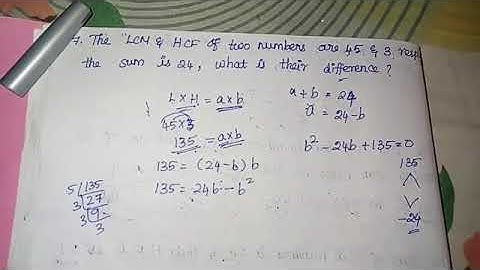 7. The "LCM & HCF of two numbers are 45 & 3, resp
the sum is 24, what is their difference?
L x H = a x b
45 x 3
135 = a x b
135 = (24-b) b
135 = 24b - b²
a + b = 24
a = 24 - b
b² - 24b + 135 = 0
135
-24
5 135
3 27
3 9
3